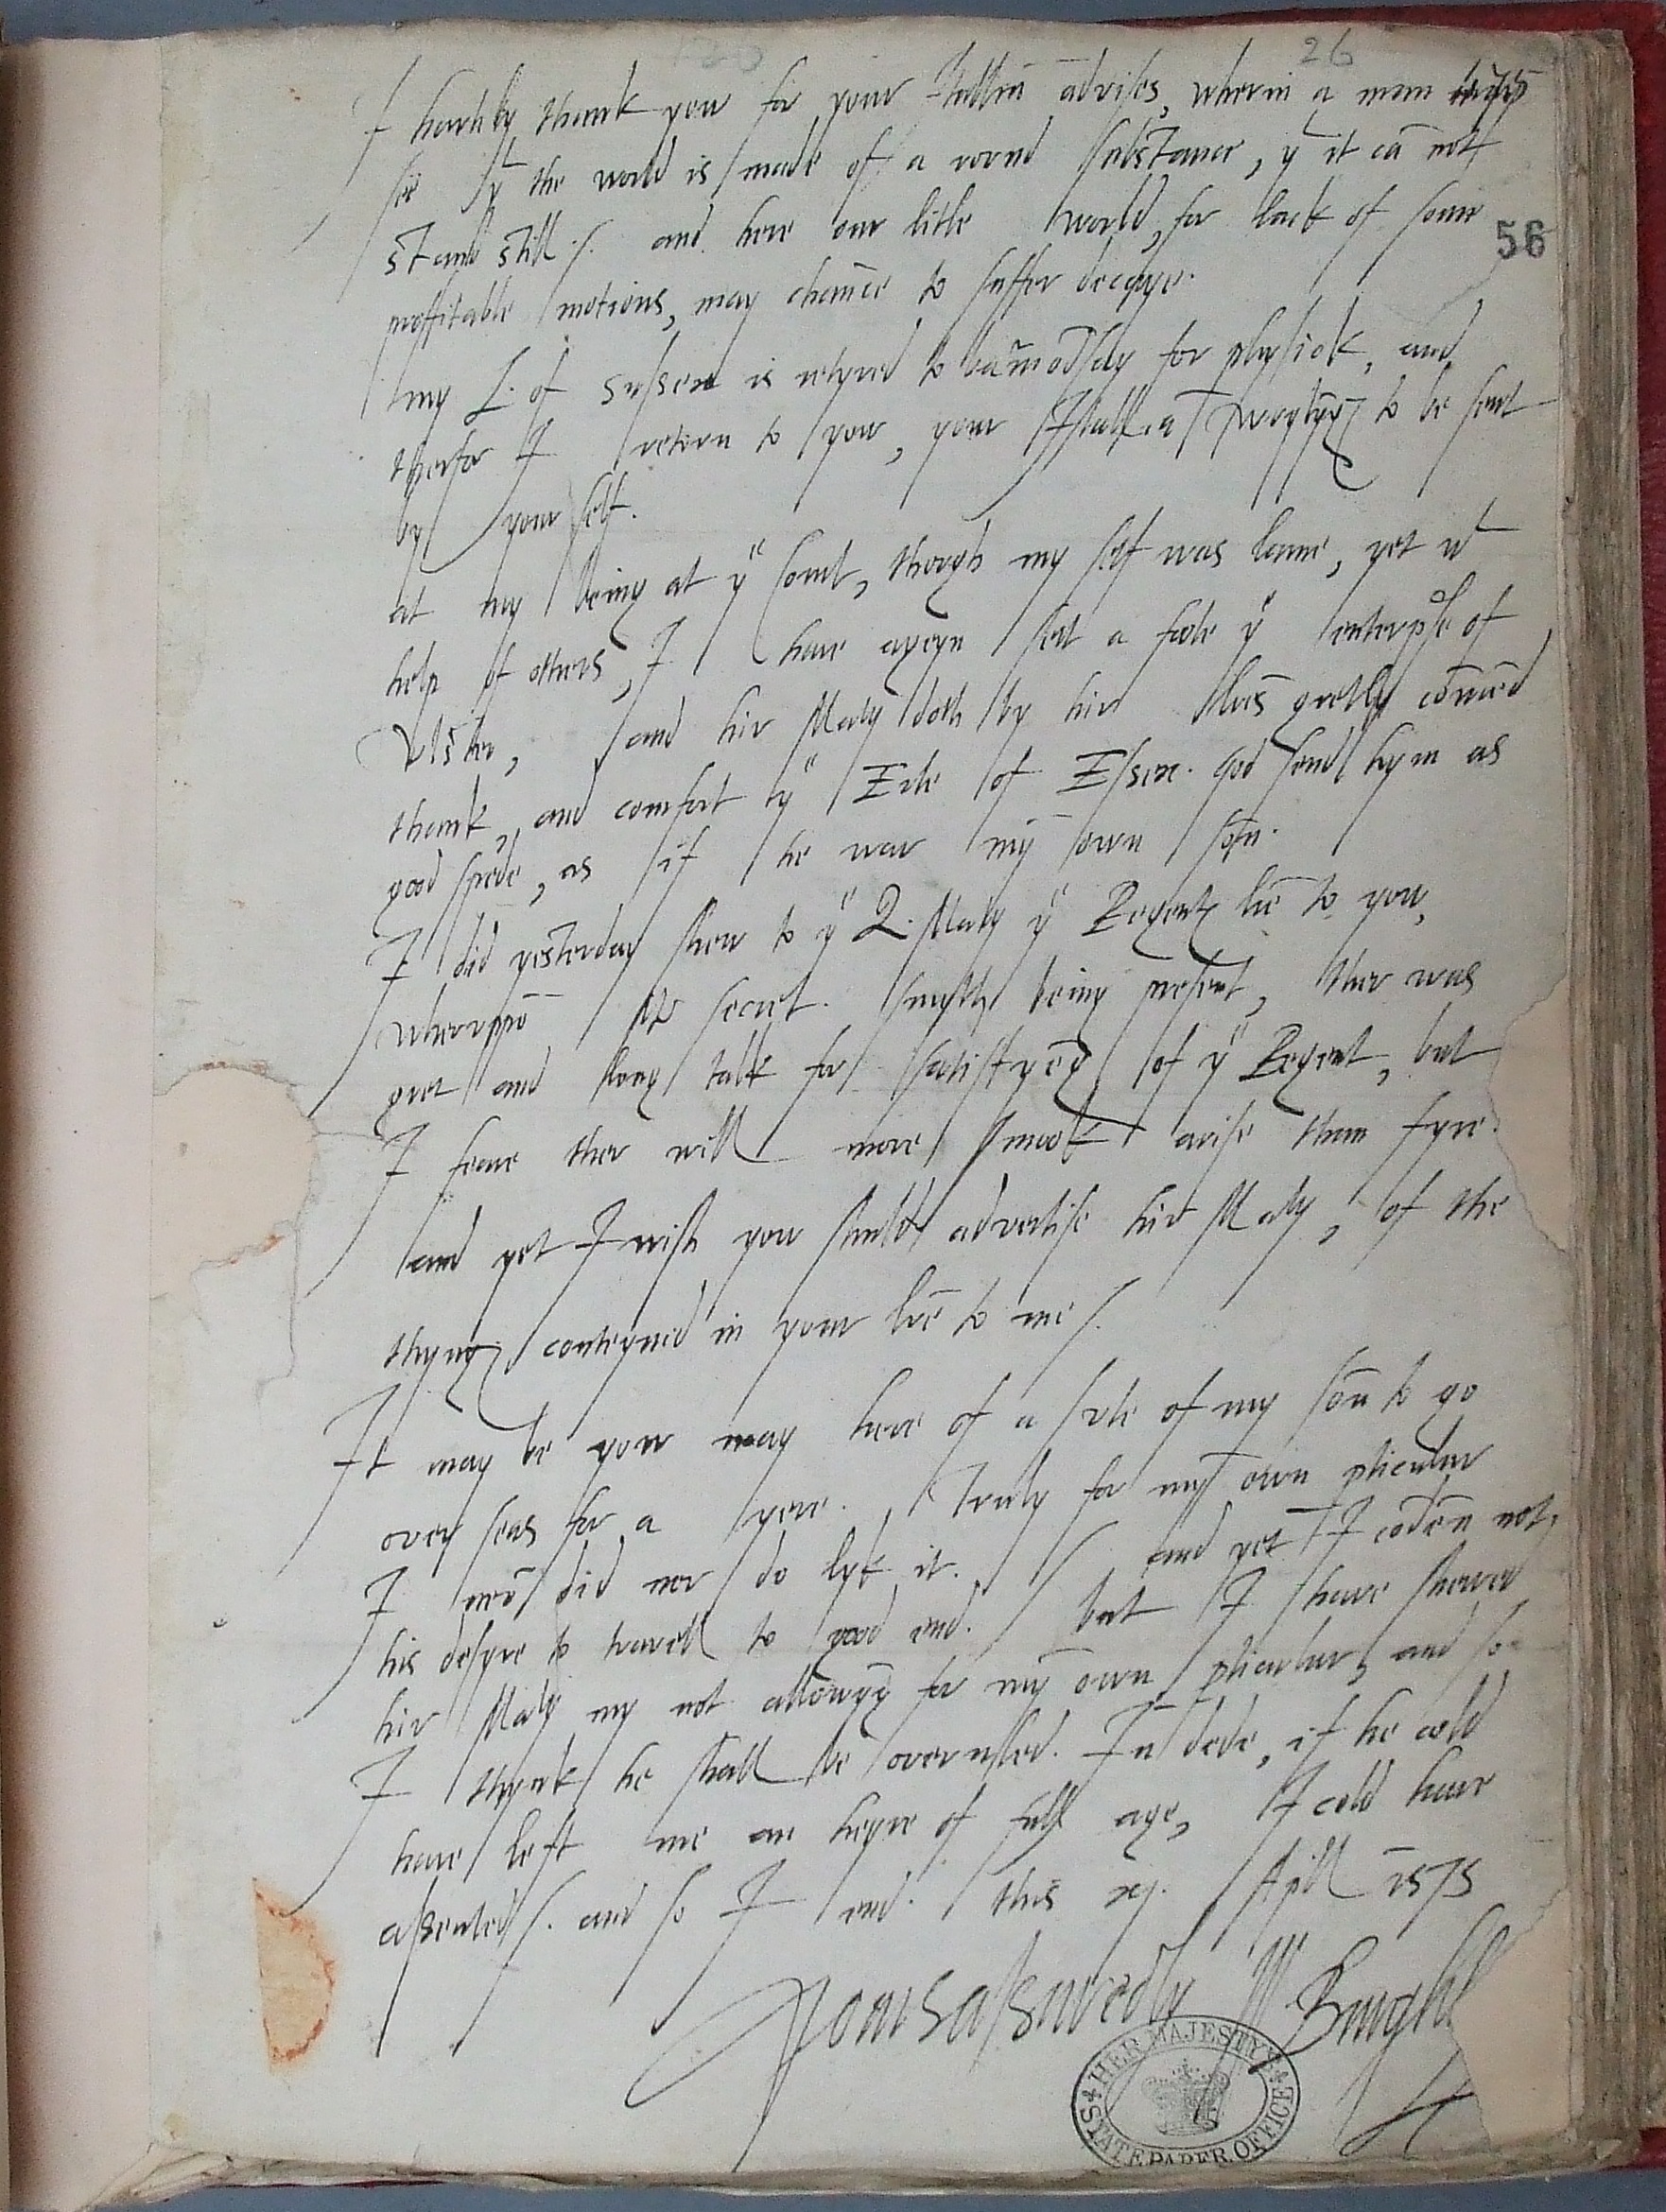 26
I hartely thank you for your Itallia advises, wherin a man
see yt the world is made of a rownd substance, yt it ca not
stand still /. and here our litle world, for lack of some
56
proffitable motions, may chance to suffer decaye.
my L. of Sussex is retyred to barmodsey for physick, and
therfor I retorn to you, your Itallia to be sent
by your self.
at my being at ye Court, though my self was lame, yet wt
help of others, I have ageyn sett a foote ye enterprise of
Vlster, and hir Maty doth by hir lres gretly comed
thank, and comfort ye Erle of Essex. God send hym as
good spede, as if he war my own son.
I did yesterday shew to ye Q. Maty ye Regentes lre to you,
wheruppo Mr secret. Smyth being present, ther was
gret and long talk for satisfyeg of ye Regent, but
I feare ther will more smook arise than fyre.
and yet I wish you shuld advertise hir Maty, of the
thynges conteyned in your lre to me /.
It may be you may heare of a sute of my son to go
over seas for a yere. Truly for my own pticular
I nevr did nor do lyk it. / and yet I coden not,
his desyre to travell to good end. / but I have shewed
hir Maty my not allowyg for my own pticular, and so
I thynk he shall be overruled. In dede, if he cold
have left me an heyre of full age, I cold have
assented /. and so I end. this xj. Aprill 1575
Yours assuredly W Burghl
HER MAJESTY'S
STATE PAPER OFFICE